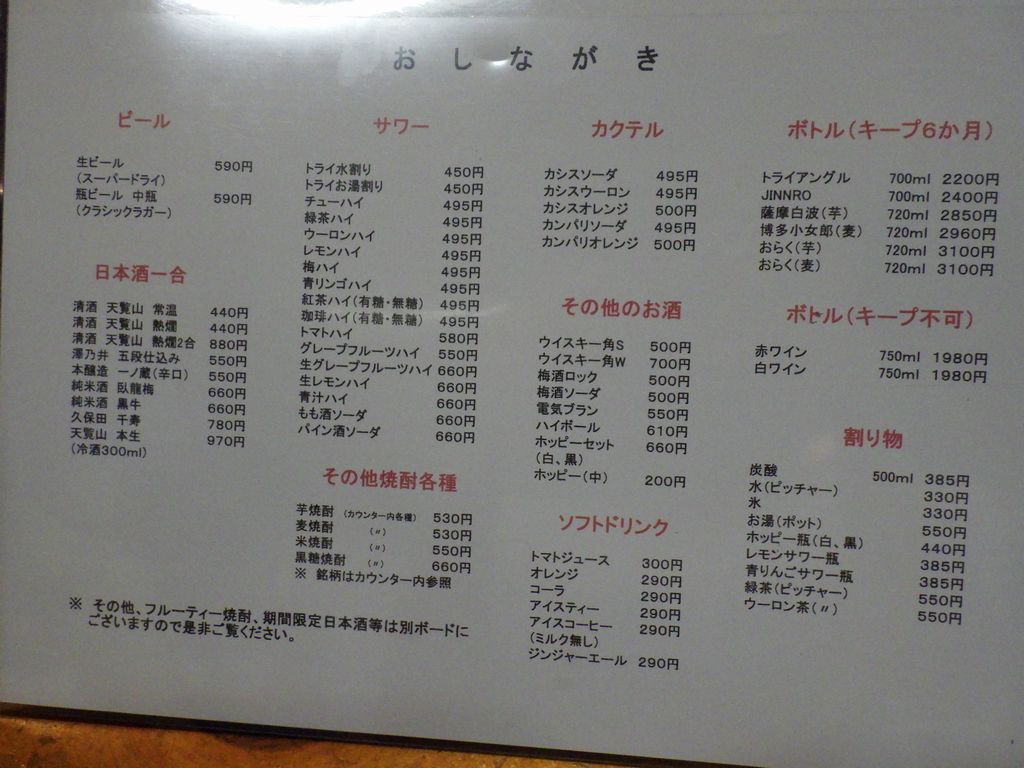 おしながき
ビール
生ビール 590円
(スーパードライ)
瓶ビール 中瓶 590円
(クラシックラガー)
日本酒一合
清酒 天覧山 常温 440円
清酒 天覧山 熱燗 440円
清酒 天覧山 熱燗2合 880円
澤乃井 五段仕込み 550円
本醸造 一ノ蔵(辛口) 550円
純米酒 臥龍梅 660円
純米酒 黒牛 660円
久保田 千寿 780円
天覧山 本生 970円
(冷酒300ml)
サワー
トライ水割り 450円
トライお湯割り 450円
チューハイ 495円
緑茶ハイ 495円
ウーロンハイ 495円
レモンハイ 495円
梅ハイ 495円
青リンゴハイ 495円
紅茶ハイ(有糖・無糖) 495円
珈琲ハイ(有糖・無糖) 495円
トマトハイ 580円
グレープフルーツハイ 550円
生グレープフルーツハイ 660円
生レモンハイ 660円
青汁ハイ 660円
もも酒ソーダ 660円
パイン酒ソーダ 660円
その他焼酎各種
芋焼酎 (カウンター内各種) 530円
麦焼酎 (〃) 530円
米焼酎 (〃) 550円
黒糖焼酎 (〃) 660円
※ 銘柄はカウンター内参照
※ その他、フルーティー焼酎、期間限定日本酒等は別ボードに
ございますので是非ご覧ください。
カクテル
カシスソーダ 495円
カシスウーロン 495円
カシスオレンジ 500円
カンパリソーダ 495円
カンパリオレンジ 500円
その他のお酒
ウイスキー角S 500円
ウイスキー角W 700円
梅酒ロック 500円
梅酒ソーダ 500円
電気ブラン 550円
ハイボール 610円
ホッピーセット 660円
(白、黒)
ホッピー(中) 200円
ソフトドリンク
トマトジュース 300円
オレンジ 290円
コーラ 290円
アイスティー 290円
アイスコーヒー 290円
(ミルク無し)
ジンジャーエール 290円
ボトル(キープ6か月)
トライアングル 700ml 2200円
JINNRO 700ml 2400円
薩摩白波(芋) 720ml 2850円
博多小女郎(麦) 720ml 2960円
おらく(芋) 720ml 3100円
おらく(麦) 720ml 3100円
ボトル(キープ不可)
赤ワイン 750ml 1980円
白ワイン 750ml 1980円
割り物
炭酸 500ml 385円
水(ピッチャー) 330円
氷 330円
お湯(ポット) 550円
ホッピー瓶(白、黒) 440円
レモンサワー瓶 385円
青りんごサワー瓶 385円
緑茶(ピッチャー) 550円
ウーロン茶(〃) 550円